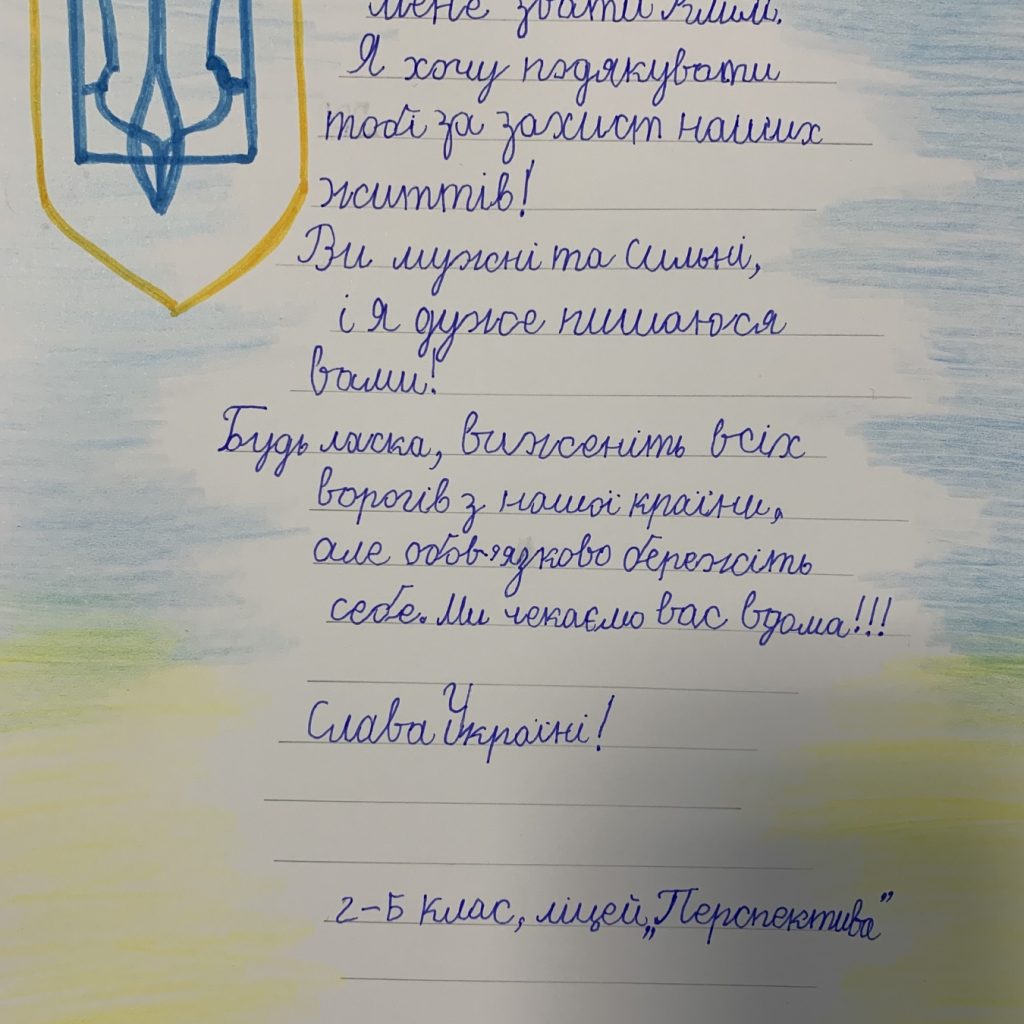 мене звати Клим.
Я хочу подякувати
тобі за захист наших
життів!
Ви мужні та сильні,
і я дуже пишаюся
вами!
Будь ласка, виженіть всіх
ворогів з нашої країни,
але обов'язково бережіть
себе. Ми чекаємо вас вдома!!!
Слава Україні!
2-Б клас, ліцей „Перспектива"